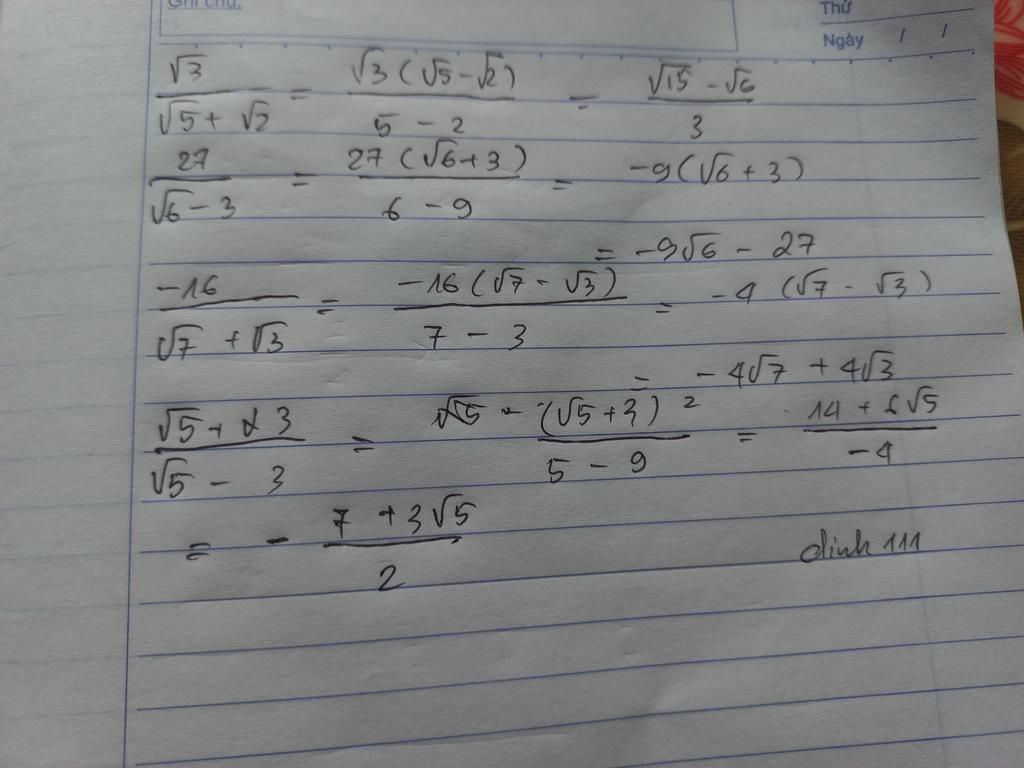 Ghi chú:
Thứ
Ngày / /
√3/(√5 + √2) = √3(√5 - √2)/(5 - 2) = (√15 - √6)/3
27/(√6 - 3) = 27(√6 + 3)/(6 - 9) = -9(√6 + 3)
= -9√6 - 27
-16/(√7 + √3) = -16(√7 - √3)/(7 - 3) = -4(√7 - √3)
= -4√7 + 4√3
(√5 + 3)/(√5 - 3) = (√5 + 3)²/(5 - 9) = (14 + 6√5)/-4
= - (7 + 3√5)/2
dinh 111